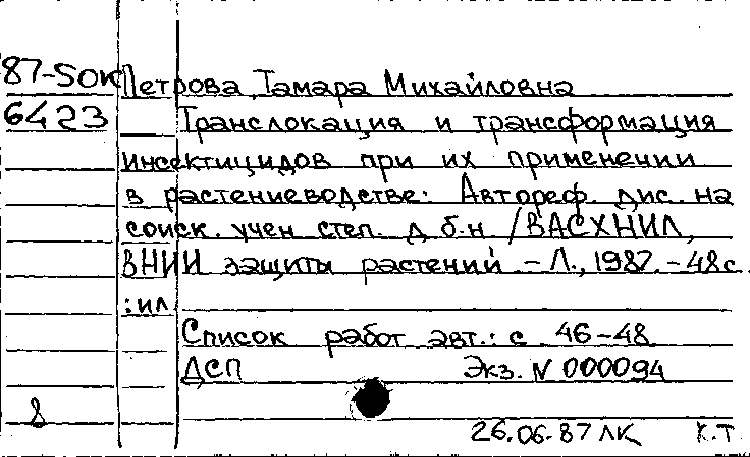 87-SOK Петрова Тамара Михайловна
6423 Транслокация и трансформация
инсектицидов при их применении
в растениеводстве: Автореф. дис. на
соиск. учен степ. д б.н. /ВАСХНИЛ,
ВНИИ защиты растений. - Л., 1987. - 48 с.
: ил
Список работ авт.: с 46-48
ДСП Экз. N 000094
8
26.06.87 ЛК К.Т.